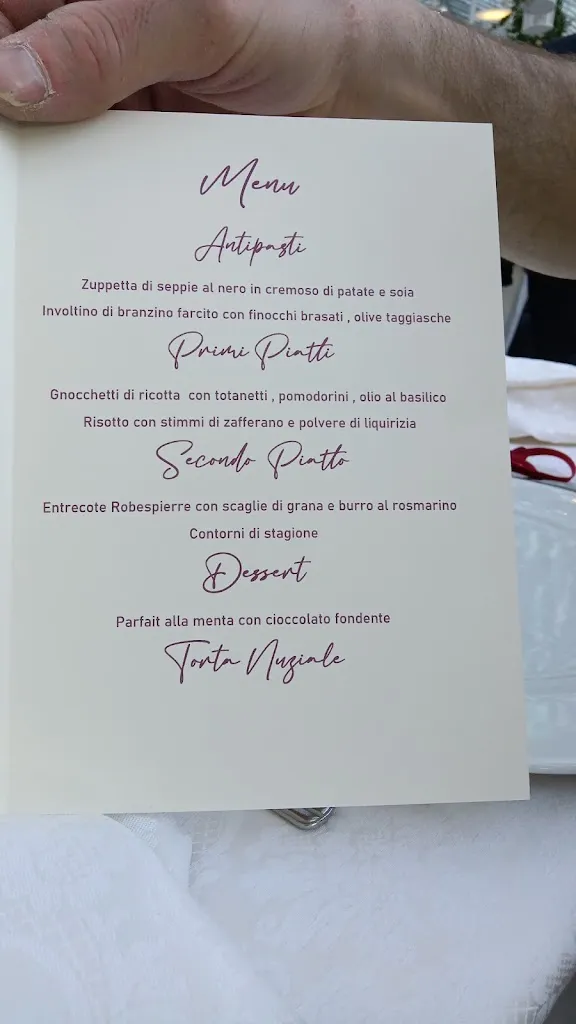 Menu
Antipasti
Zuppetta di seppie al nero in cremoso di patate e soia
Involtino di branzino farcito con finocchi brasati , olive taggiasche
Primi Piatti
Gnocchetti di ricotta con totanetti , pomodorini , olio al basilico
Risotto con stimmi di zafferano e polvere di liquirizia
Secondo Piatto
Entrecote Robespierre con scaglie di grana e burro al rosmarino
Contorni di stagione
Dessert
Parfait alla menta con cioccolato fondente
Torta Nuziale